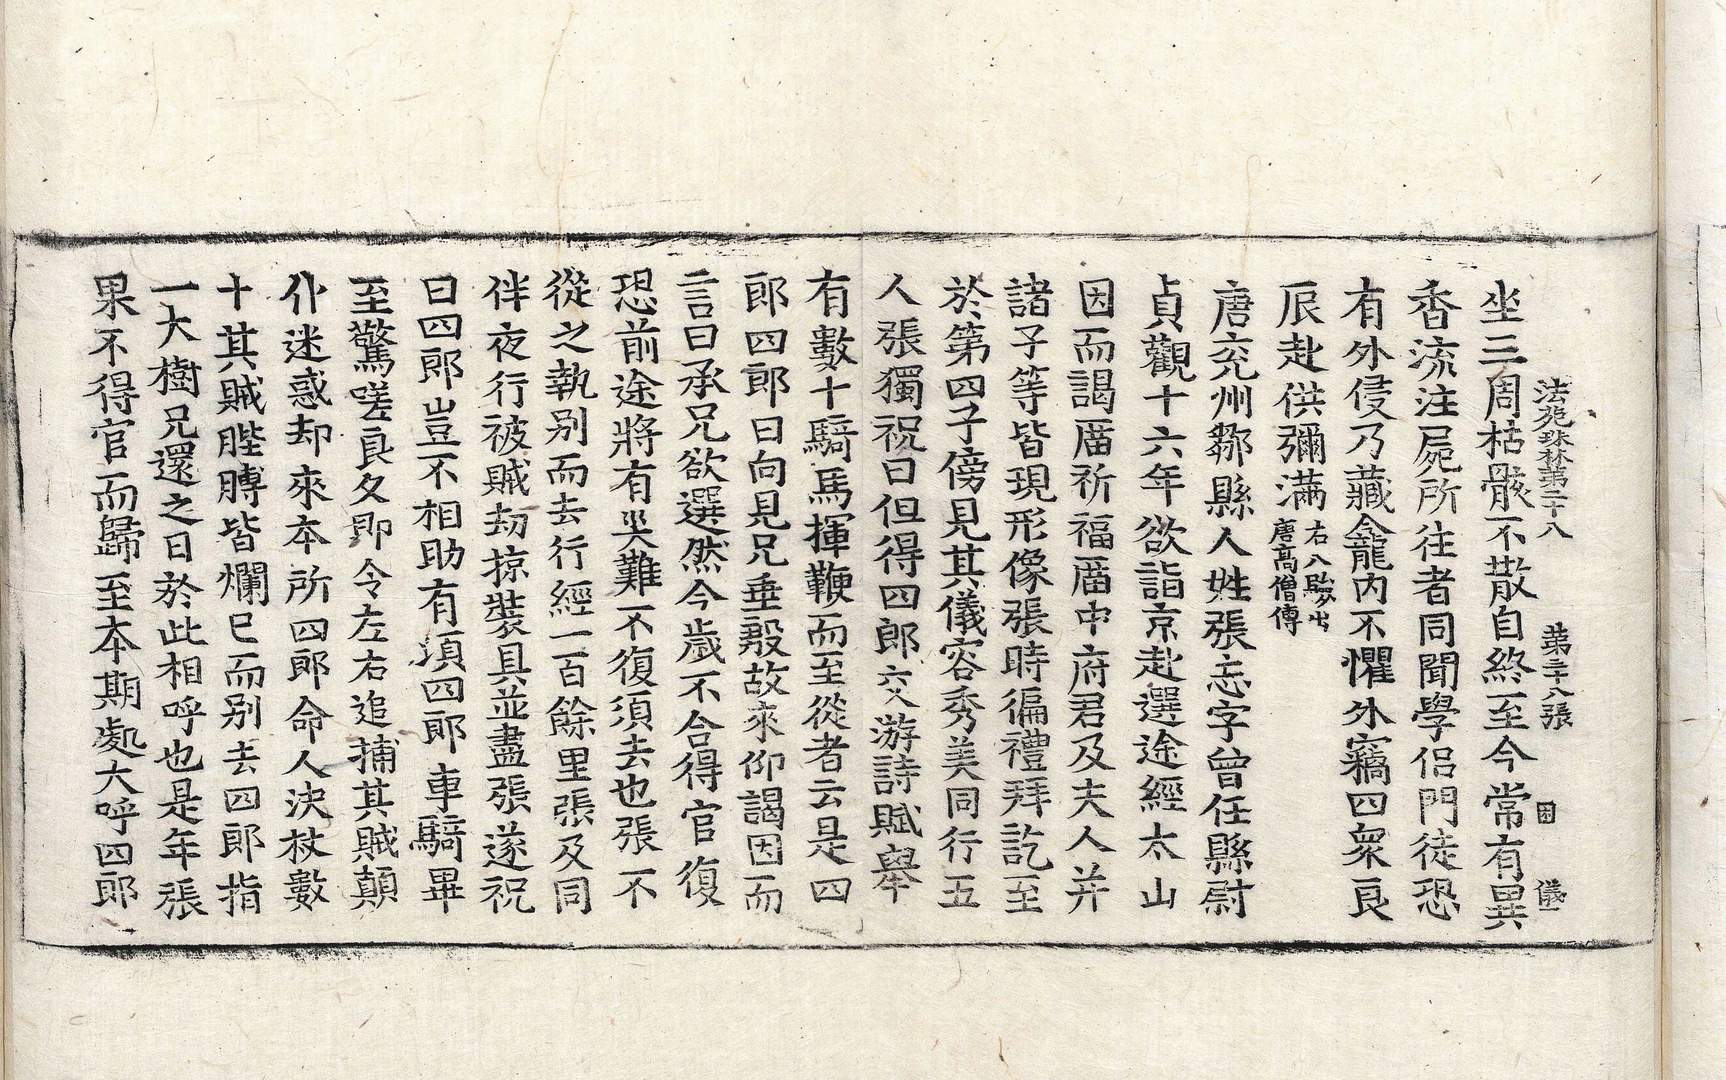 法苑珠林第二十八 第三十八張 囯 儀
坐三周枯骸不散自終至今常有異
香流注屍所往者同聞學侣門徒恐
有外侵乃藏龕龍内不懼外竊四衆良
辰赴供彌滿右八驗出唐高僧傳
唐兖州鄒縣人姓張忘字曾任縣尉
貞觀十六年欲詣京赴選途經太山
因而謁庿祈福庿中府君及夫人并
諸子等皆現形像張時徧禮拜訖至
於第四子傍見其儀容秀美同行五
人張獨祝曰但得四郎交游詩賦舉
有數十騎馬揮鞭而至從者云是四
郎四郎曰向見兄垂殷故來仰謁因而
言曰承兄欲選然今歲不合得官復
恐前途將有災難不復須去也張不
從之執别而去行經一百餘里張及同
伴夜行被賊刼掠裝具並盡張遂祝
曰四郎豈不相助有頃四郎車騎畢
至驚嗟良久即令左右追捕其賊顛
仆迷惑却來本所四郎命人決杖數
十其賊䏶膊皆爛已而别去四郎指
一大樹兄還之日於此相呼也是年張
果不得官而歸至本期處大呼四郎